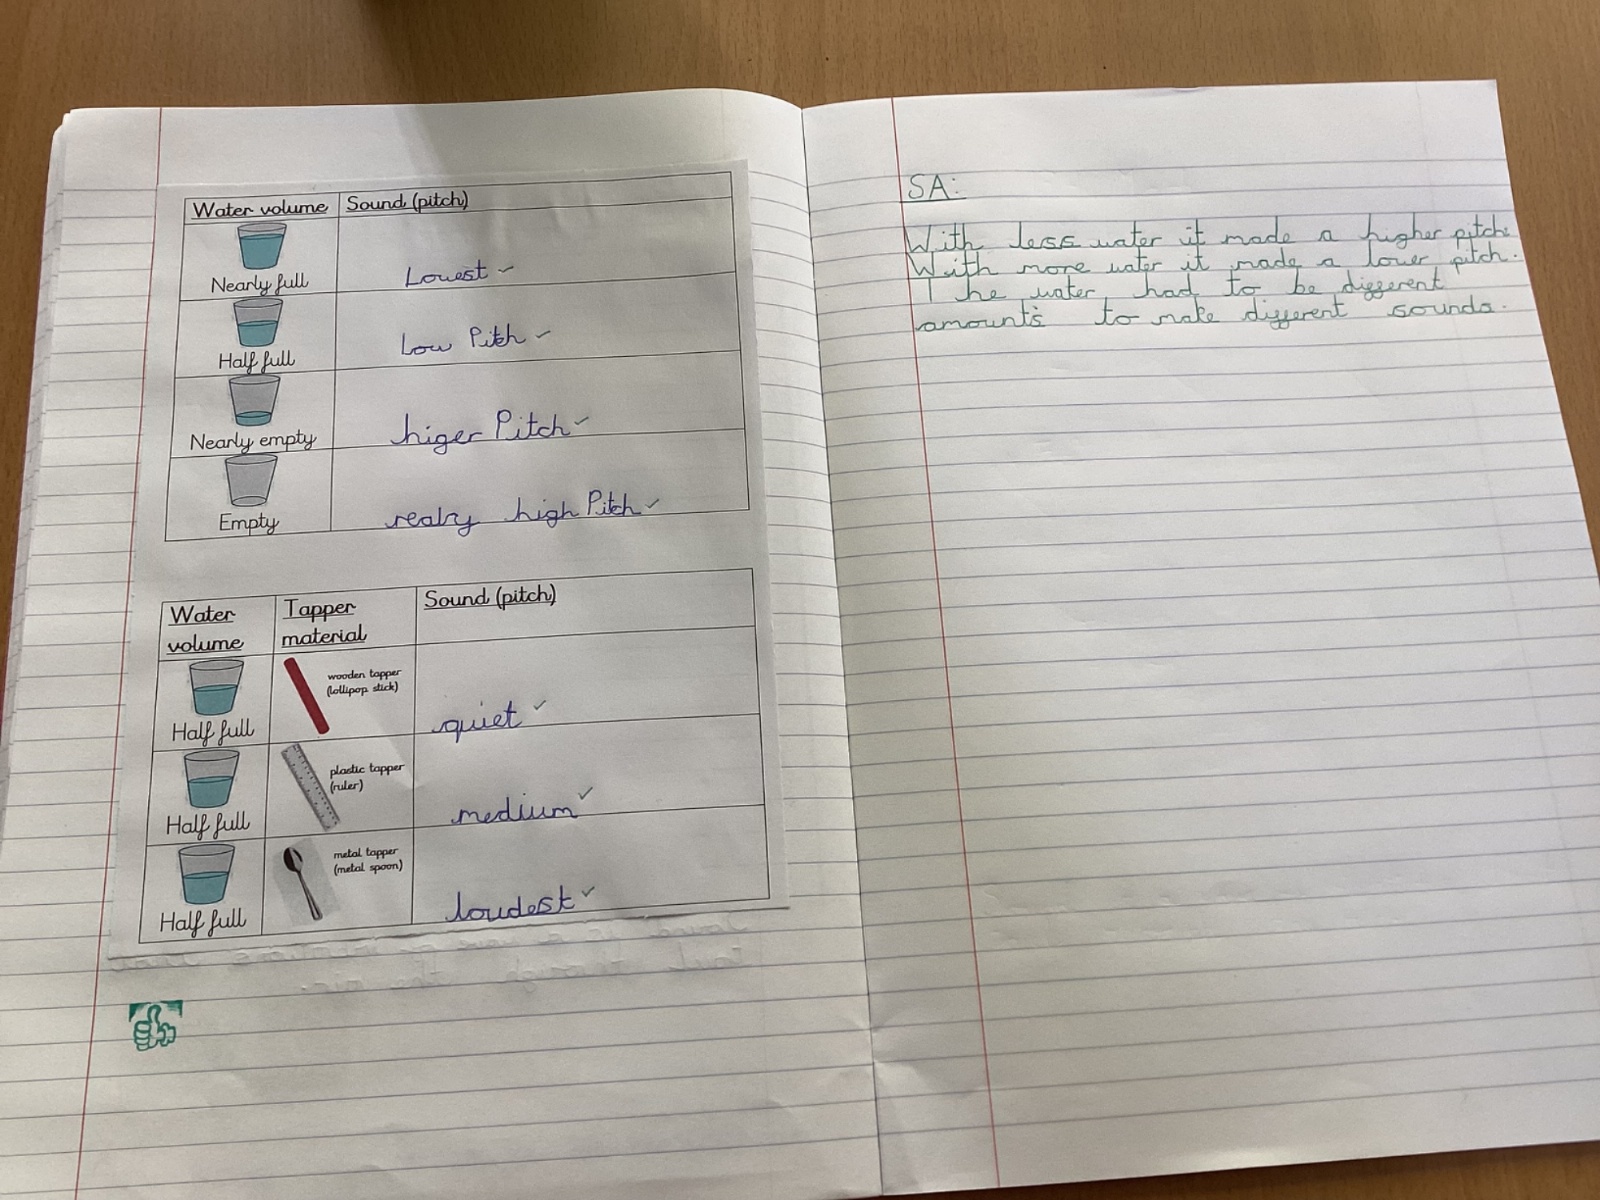 Water volume Sound (pitch)
Nearly full Lowest
Half full Low Pitch
Nearly empty higer Pitch
Empty realry high Pitch
Water volume Tapper material Sound (pitch)
Half full wooden tapper (lollipop stick) quiet
Half full plastic tapper (ruler) medium
Half full metal tapper (metal spoon) loudest
SA:
With less water it made a higher pitch.
With more water it made a lower pitch.
The water had to be different
amounts to make different sounds.